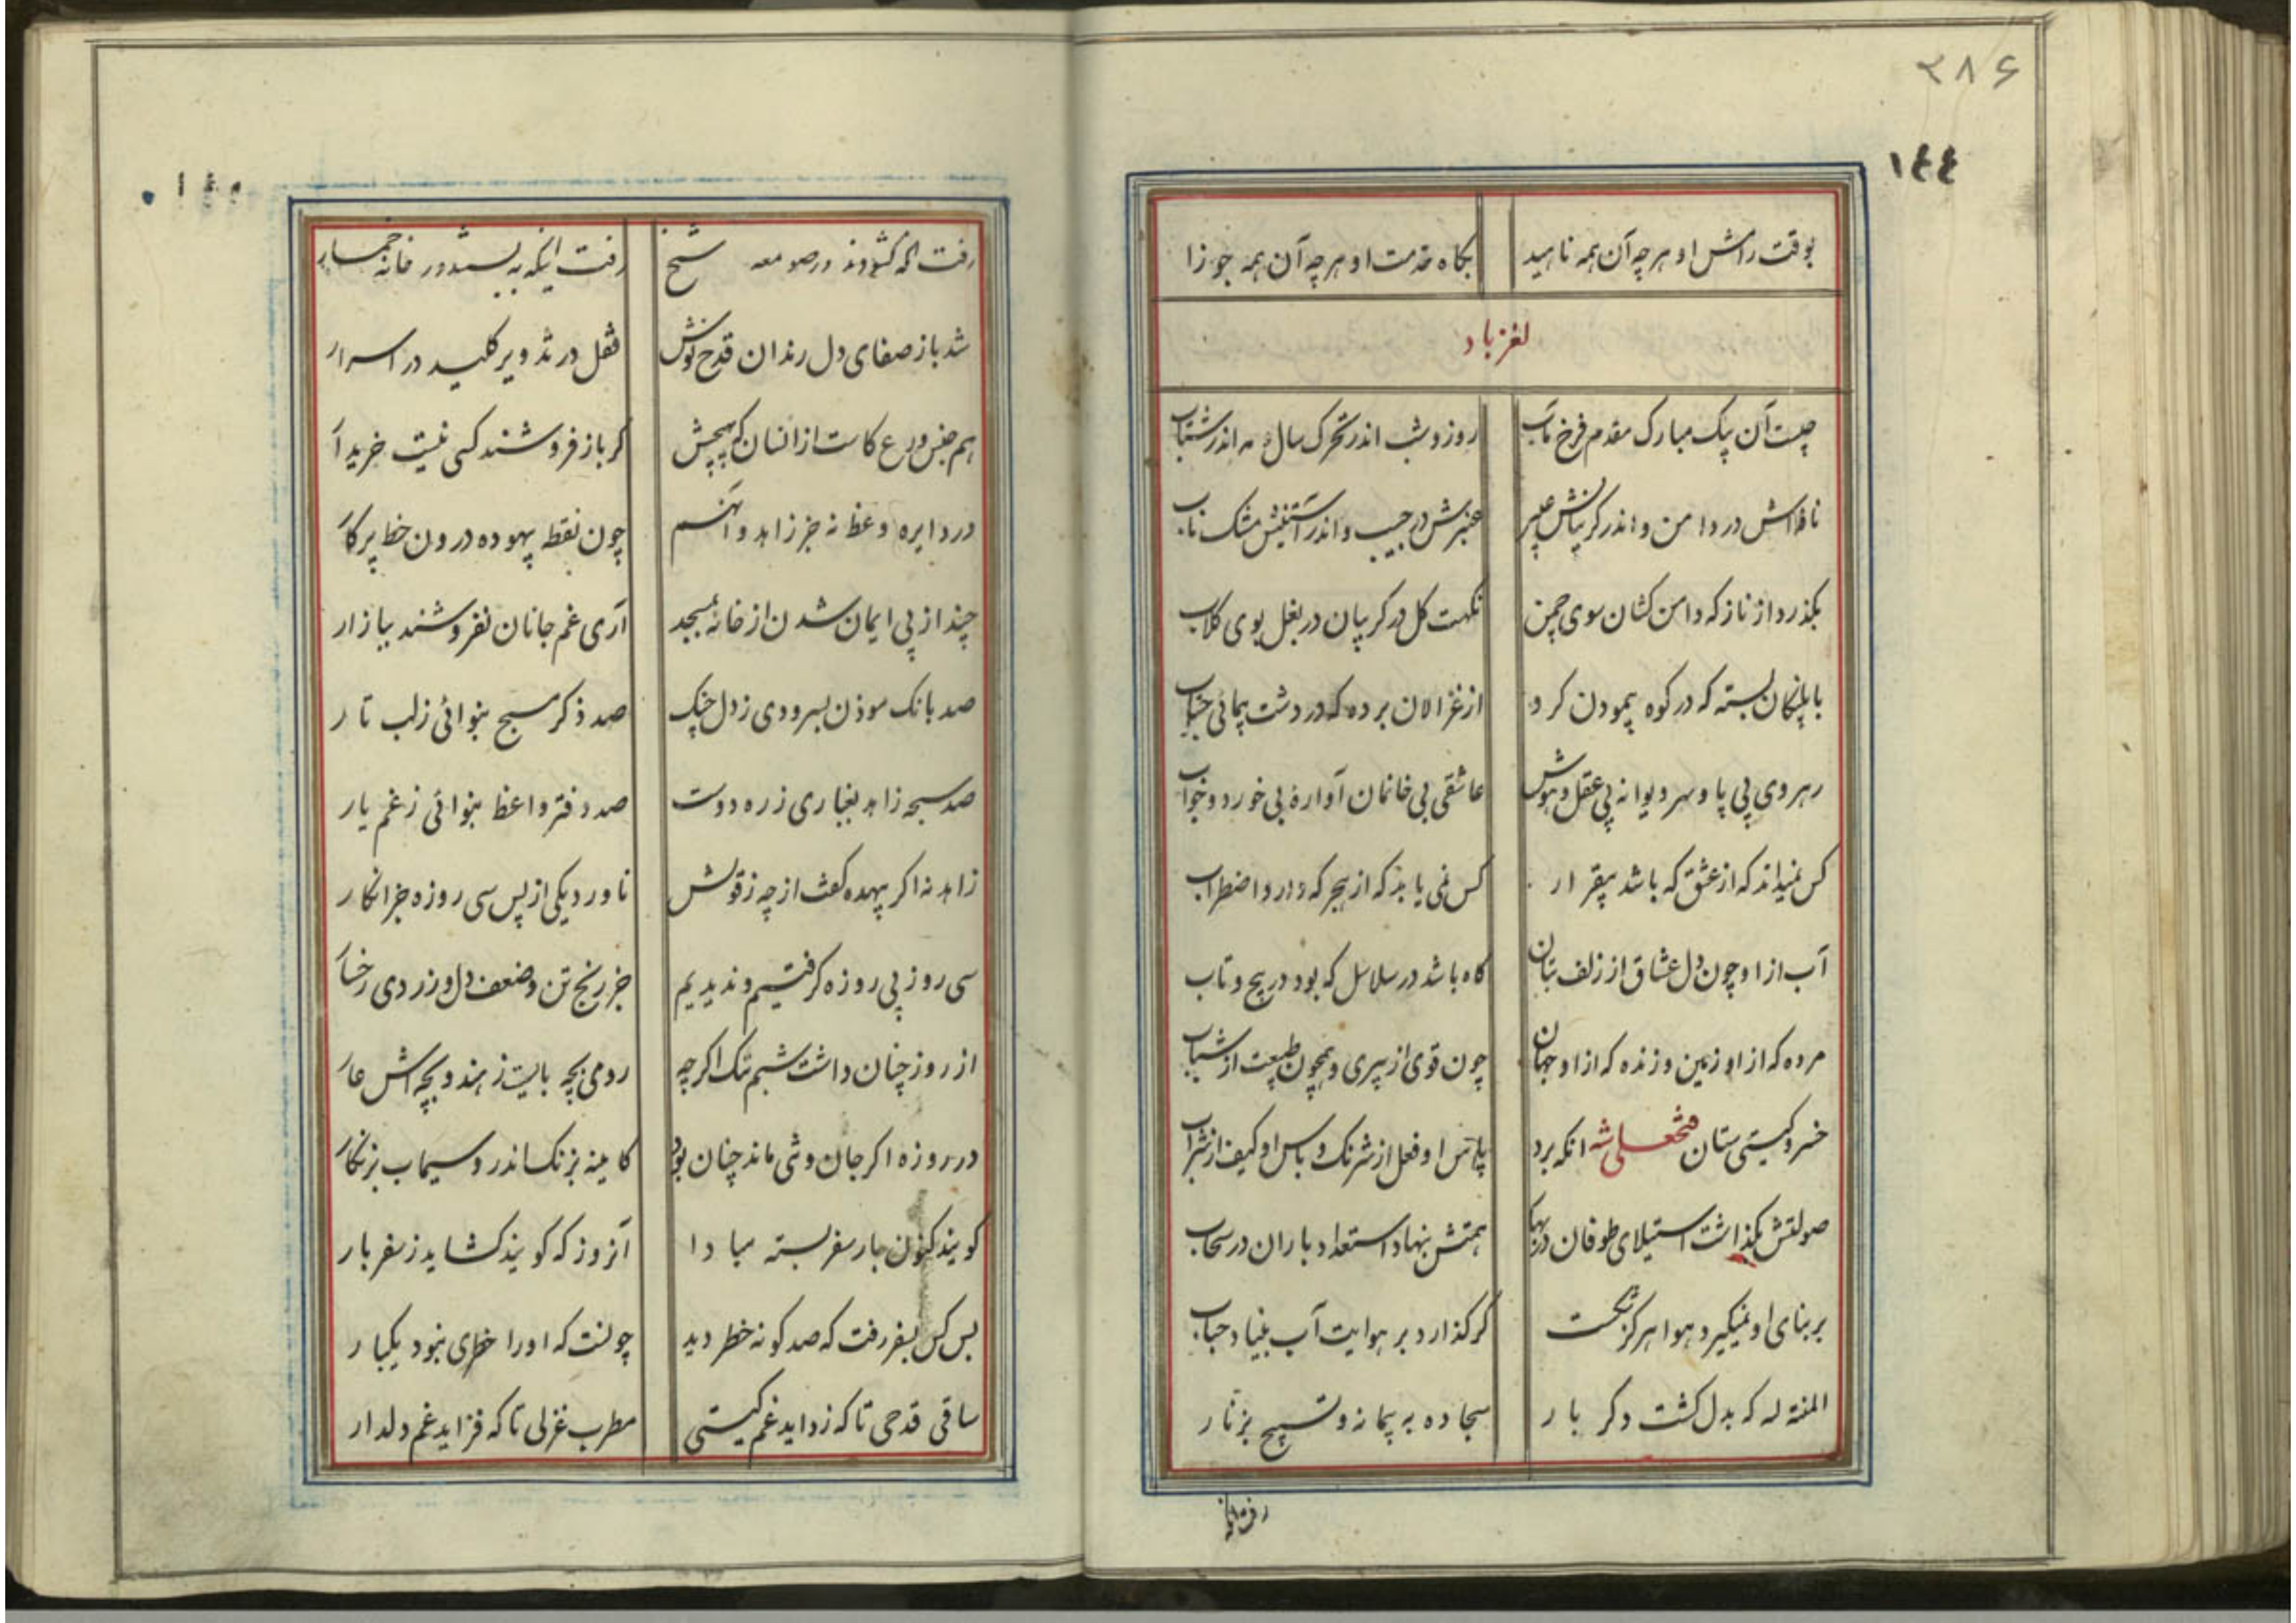 ۳۸۶
۱۴۴
بوقت رامش او هر چه آن همه ناهید بکاه خدمت او هر چه آن همه جوزا
لغز باد
چیست آن پیک مبارک مقدم فرخ مآب روز و شب اندر تحرک سال و مه اندر شتاب
نافه‌اش در دامن و اندر کریبانش عبیر عنبرش در جیب و اندر آستینش مشک ناب
بکذرد از ناز که دامن کشان سوی چمن نکهت کل در کریبان در بغل بوی کلاب
با پلنکان بسته که در کوه پیمودن کرو از غزالان برده که در دشت پیمائی
رهروی بی پا و سر دیوانه بی عقل و هوش عاشقی بی خانمان آوارهٔ بی خورد و خواب
کس نمیداند که از عشق که باشد بیقرار کس نمی یابد که از هجر که دارد اضطراب
آب از او چون دل عشاق از زلف بتان کاه باشد در سلاسل که بود در پیچ و تاب
مرده که از او زمین و زنده که از او جهان چون قوی از پیری و همچون طبیعت از شباب
خسرو کیتی ستان فتحعلی شه انکه برد پاس او فعل از شرنک و باس او کیف از شراب
صولتش بکذاشت استیلای طوفان در همتش بنهاد استعداد باران در سحاب
بر بنای او نمیکیرد هوا هرکز کر کذارد بر هوایت آب بنیاد حباب
المنة لله که بدل کشت دکر بار سجاده به پیمانه و تسبیح بزنار
رفت آنکه
۱۴۵
رفت آنکه کشودند در صومعه شیخ رفت اینکه به بستند در خانه خمار
شد باز صفای دل رندان قدح نوش قفل در تذویر کلید در اسرار
هم جنس ورع کاست از انسان که بهیچش کر باز فروشند کسی نیست خریدار
در دایره وعظ نه جز زاهد و آنهم چون نقطه بیهوده درون خط پرکار
چند از پی ایمان شدن از خانه بمسجد آری غم جانان نفروشند ببازار
صد بانک موذن بسرودی ز دل چنک صد ذکر مسبح بنوائی ز لب تار
صد سبحه زاهد بغباری ز ره دوست صد دفتر واعظ بنوائی ز غم یار
زاهد نه اکر بیهده کفت از چه ز قولش ناورد یکی از پس سی روزه جز انکار
سی روز پی روزه کرفتیم و ندیدیم جز رنج تن و ضعف دل و زردی رخسار
از روز چنان داشت شبم ننک اکرچه رومی بچه بایست ز هندو بچه‌اش عار
در روزه اکر جان وشی ماند چنان بود کاینه بزنک اندر و سیماب بزنکار
کویند کنون بار سفر بسته مبادا آنروز که کویند کشاید ز سفر بار
بس کس بسفر رفت که صد کونه خطر دید چونست که او را خطری نبود یکبار
ساقی قدحی تا که زداید غم کیتی مطرب غزلی تا که فزاید غم دلدار